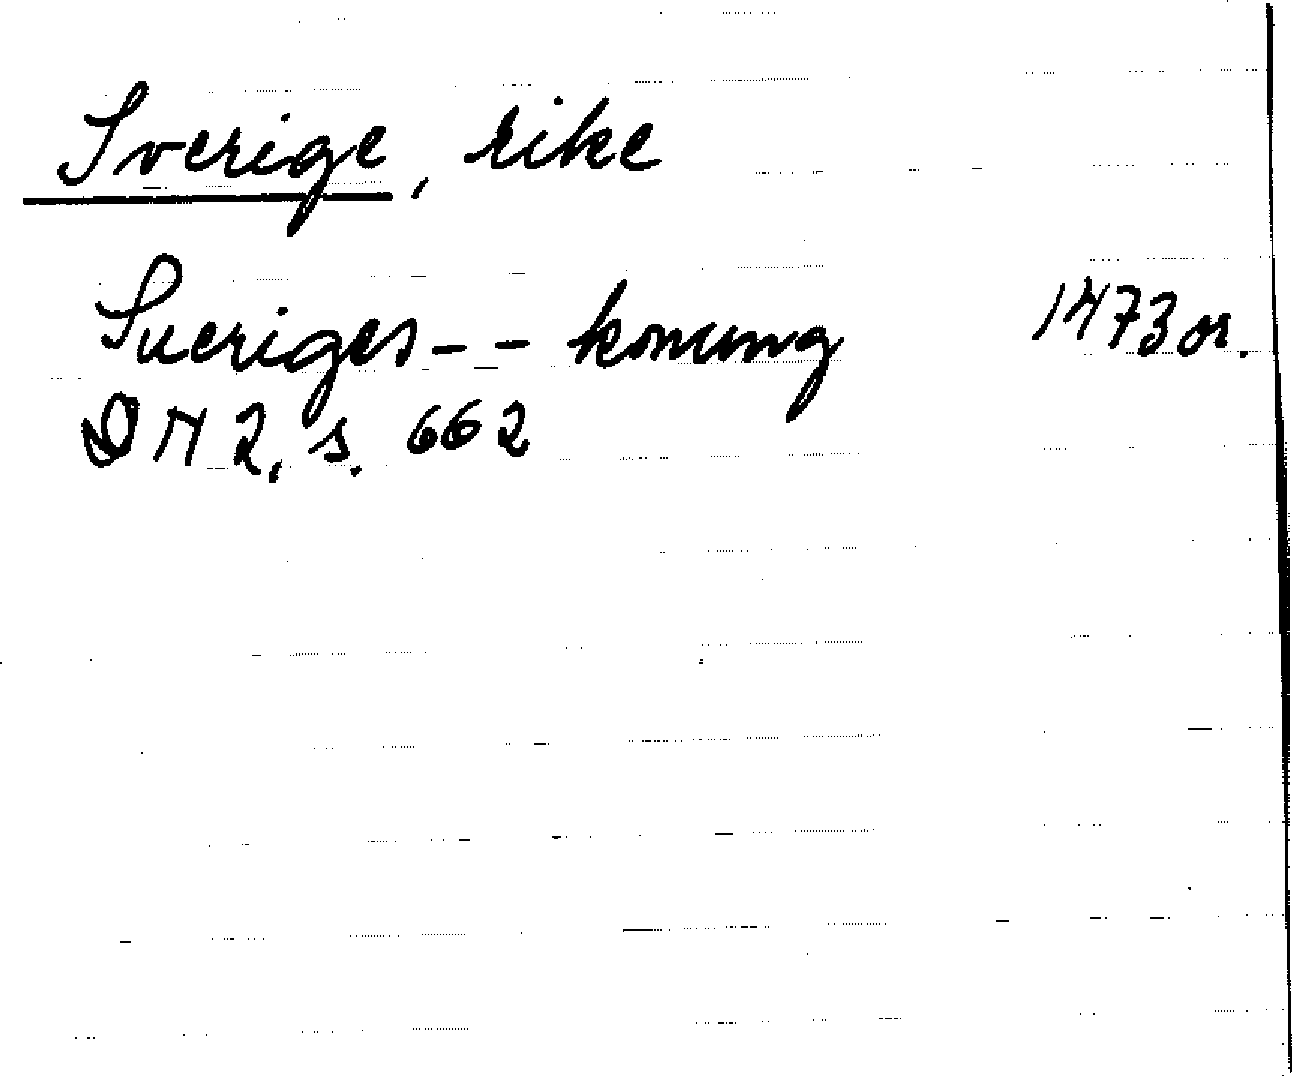 Sverige, rike
Sueriges - - konung 1473 or.
DN 2, s. 662